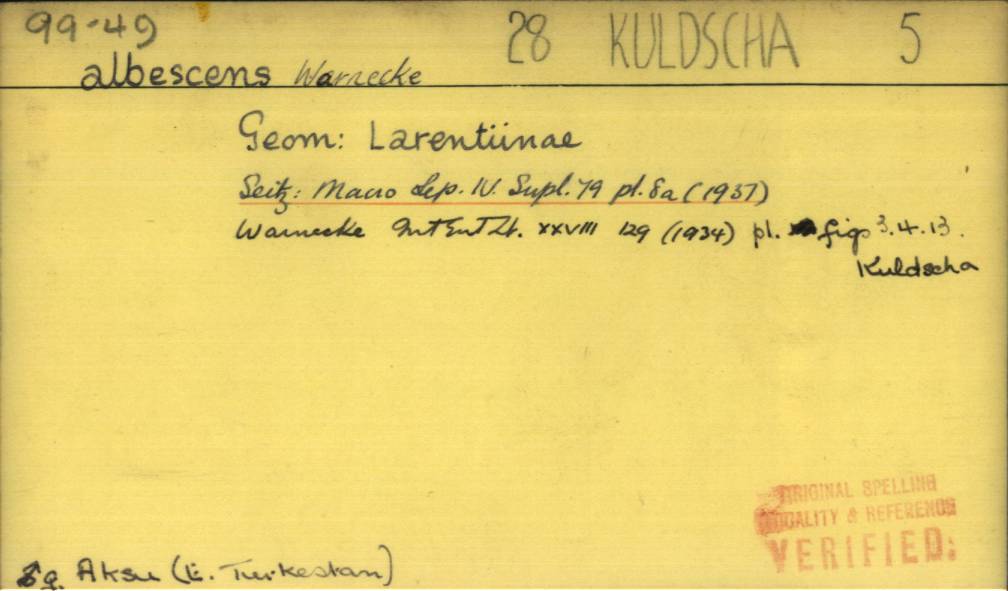 99-49 28 KULDSCHA 5
albescens Warnecke
Geom: Larentiinae
Seitz: Macro Lep. IV. Supl. 79 pl. 8a (1937)
Warnecke Int Ent Zt. XXVIII 129 (1934) pl. figs 3.4.13.
Kuldscha
ORIGINAL SPELLING
LOCALITY & REFERENCE
VERIFIED:
Aksu (E. Turkestan)